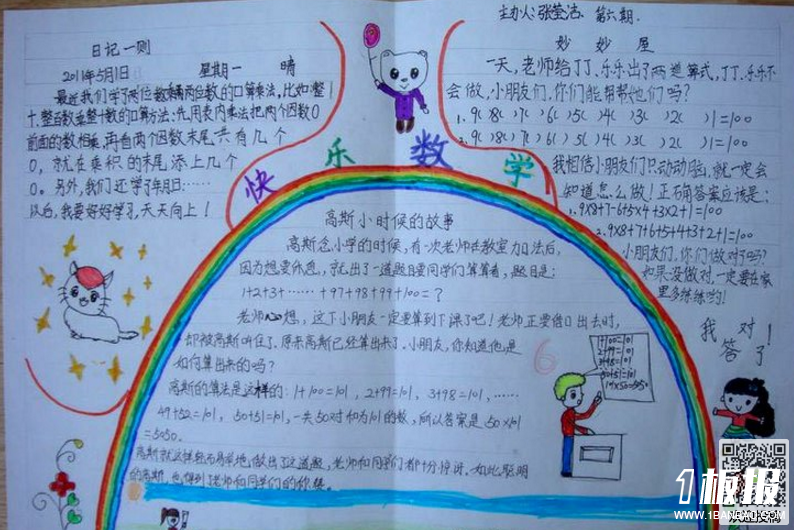 主办人:张莹洁. 第六期.
日记一则
2011年5月1日 星期一 晴
最近我们学了两位数乘两位数的口算乘法,比如整
十、整百数乘整十数的口算方法:先用表内乘法把两个因数0
前面的数相乘,再看两个因数末尾共有几个
0,就在乘积的末尾添上几个
0。另外,我们还学了年月日……
以后,我要好好学习,天天向上!
妙妙屋
一天,老师给丁丁、乐乐出了两道算式,丁丁、乐乐不
会做,小朋友们,你们能帮帮他们吗?
1. 9( 8( )7( )6( )5( )4( )3( )2( )1=100
2. 9( 8( )7( )6( )5( )4( )3( )2( )1=100
我相信小朋友们只动动脑,就一定会
知道怎么做!正确答案应该是:
1. 9×8+7-6+5×4+3×2+1=100
2. 9×8+7+6+5+4+3+2+1=100
小朋友们,你们做对了吗?
如果没做对,一定要在家
里多练练哟!
快乐数学
高斯小时候的故事
高斯念小学的时候,有一次老师在教完加法后,
因为想要休息,就出了一道题目要同学们算算看,题目是:
1+2+3+……+97+98+99+100=?
老师心想,这下小朋友一定要算到下课了吧!老师正要借口出去时,
却被高斯叫住了.原来高斯已经算出来了.小朋友,你知道他是
如何算出来的吗?
高斯的算法是这样的:1+100=101,2+99=101,3+98=101,……
49+52=101,50+51=101,一共50对和为101的数,所以答案是50×101
=5050.
高斯就这样轻而易举地做出了这道题,老师和同学们都十分惊讶.如此聪明
的高斯,也得到了老师和同学们的称赞.
6
1+100=101
2+99=101
3+98=101
50+51=101
我答对了!
1板报
WWW.1BANBAO.COM